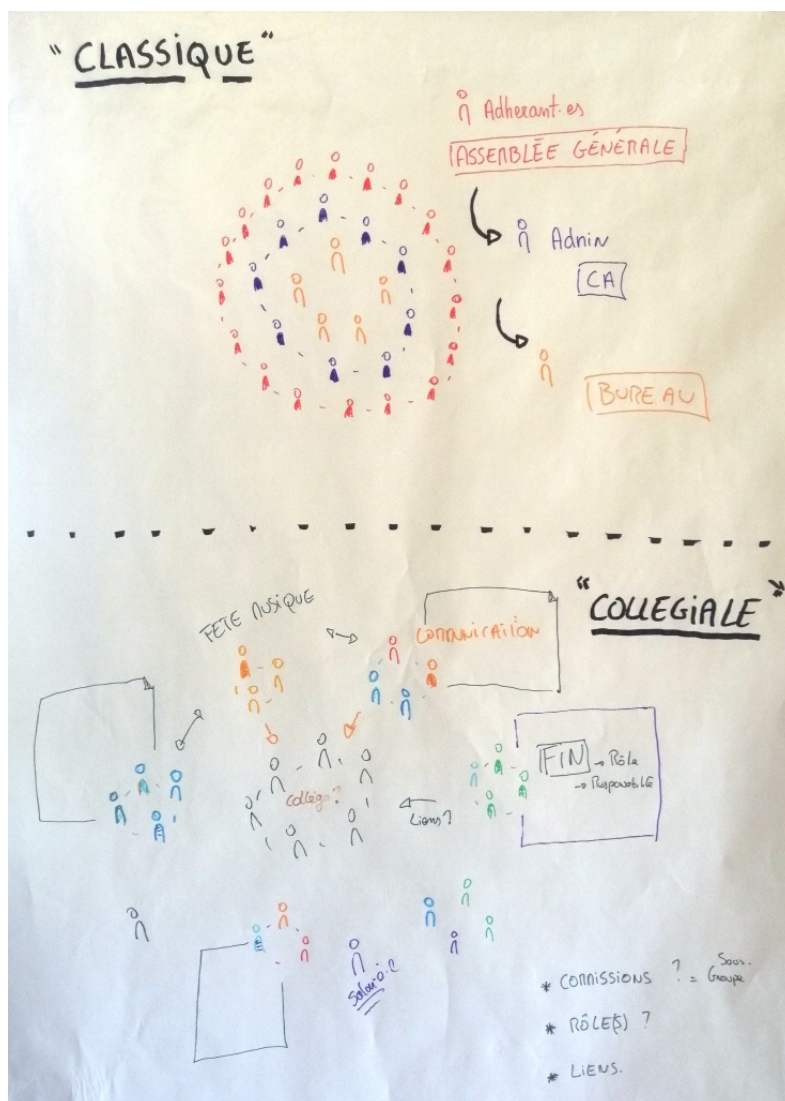 "CLASSIQUE"
Adherant·es
ASSEMBLÉE GÉNÉRALE
Admin
CA
BUREAU
"COLLEGIALE"
FETE MUSIQUE
COMMUNICATION
FIN → Rôle
→ Responsabilité
Collège?
Liens?
Salarié·e?
* COMMISSIONS ? = Sous-
Groupe
* RÔLE(S) ?
* LIENS.